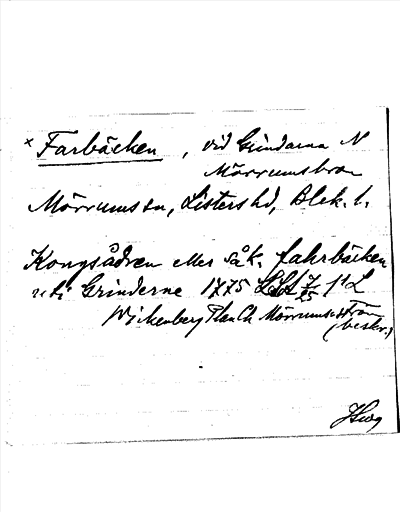 x Farbäcken, vid Grindarna N
Mörrumsbron
Mörrums sn, Listers hd, Blek. l.
Kongsådren eller så k. fahrbäcken
uti Grinderne 1775 LSA 7/25 f1 L
Wickenberg Plan Ch Mörrumsström
(beskr.)